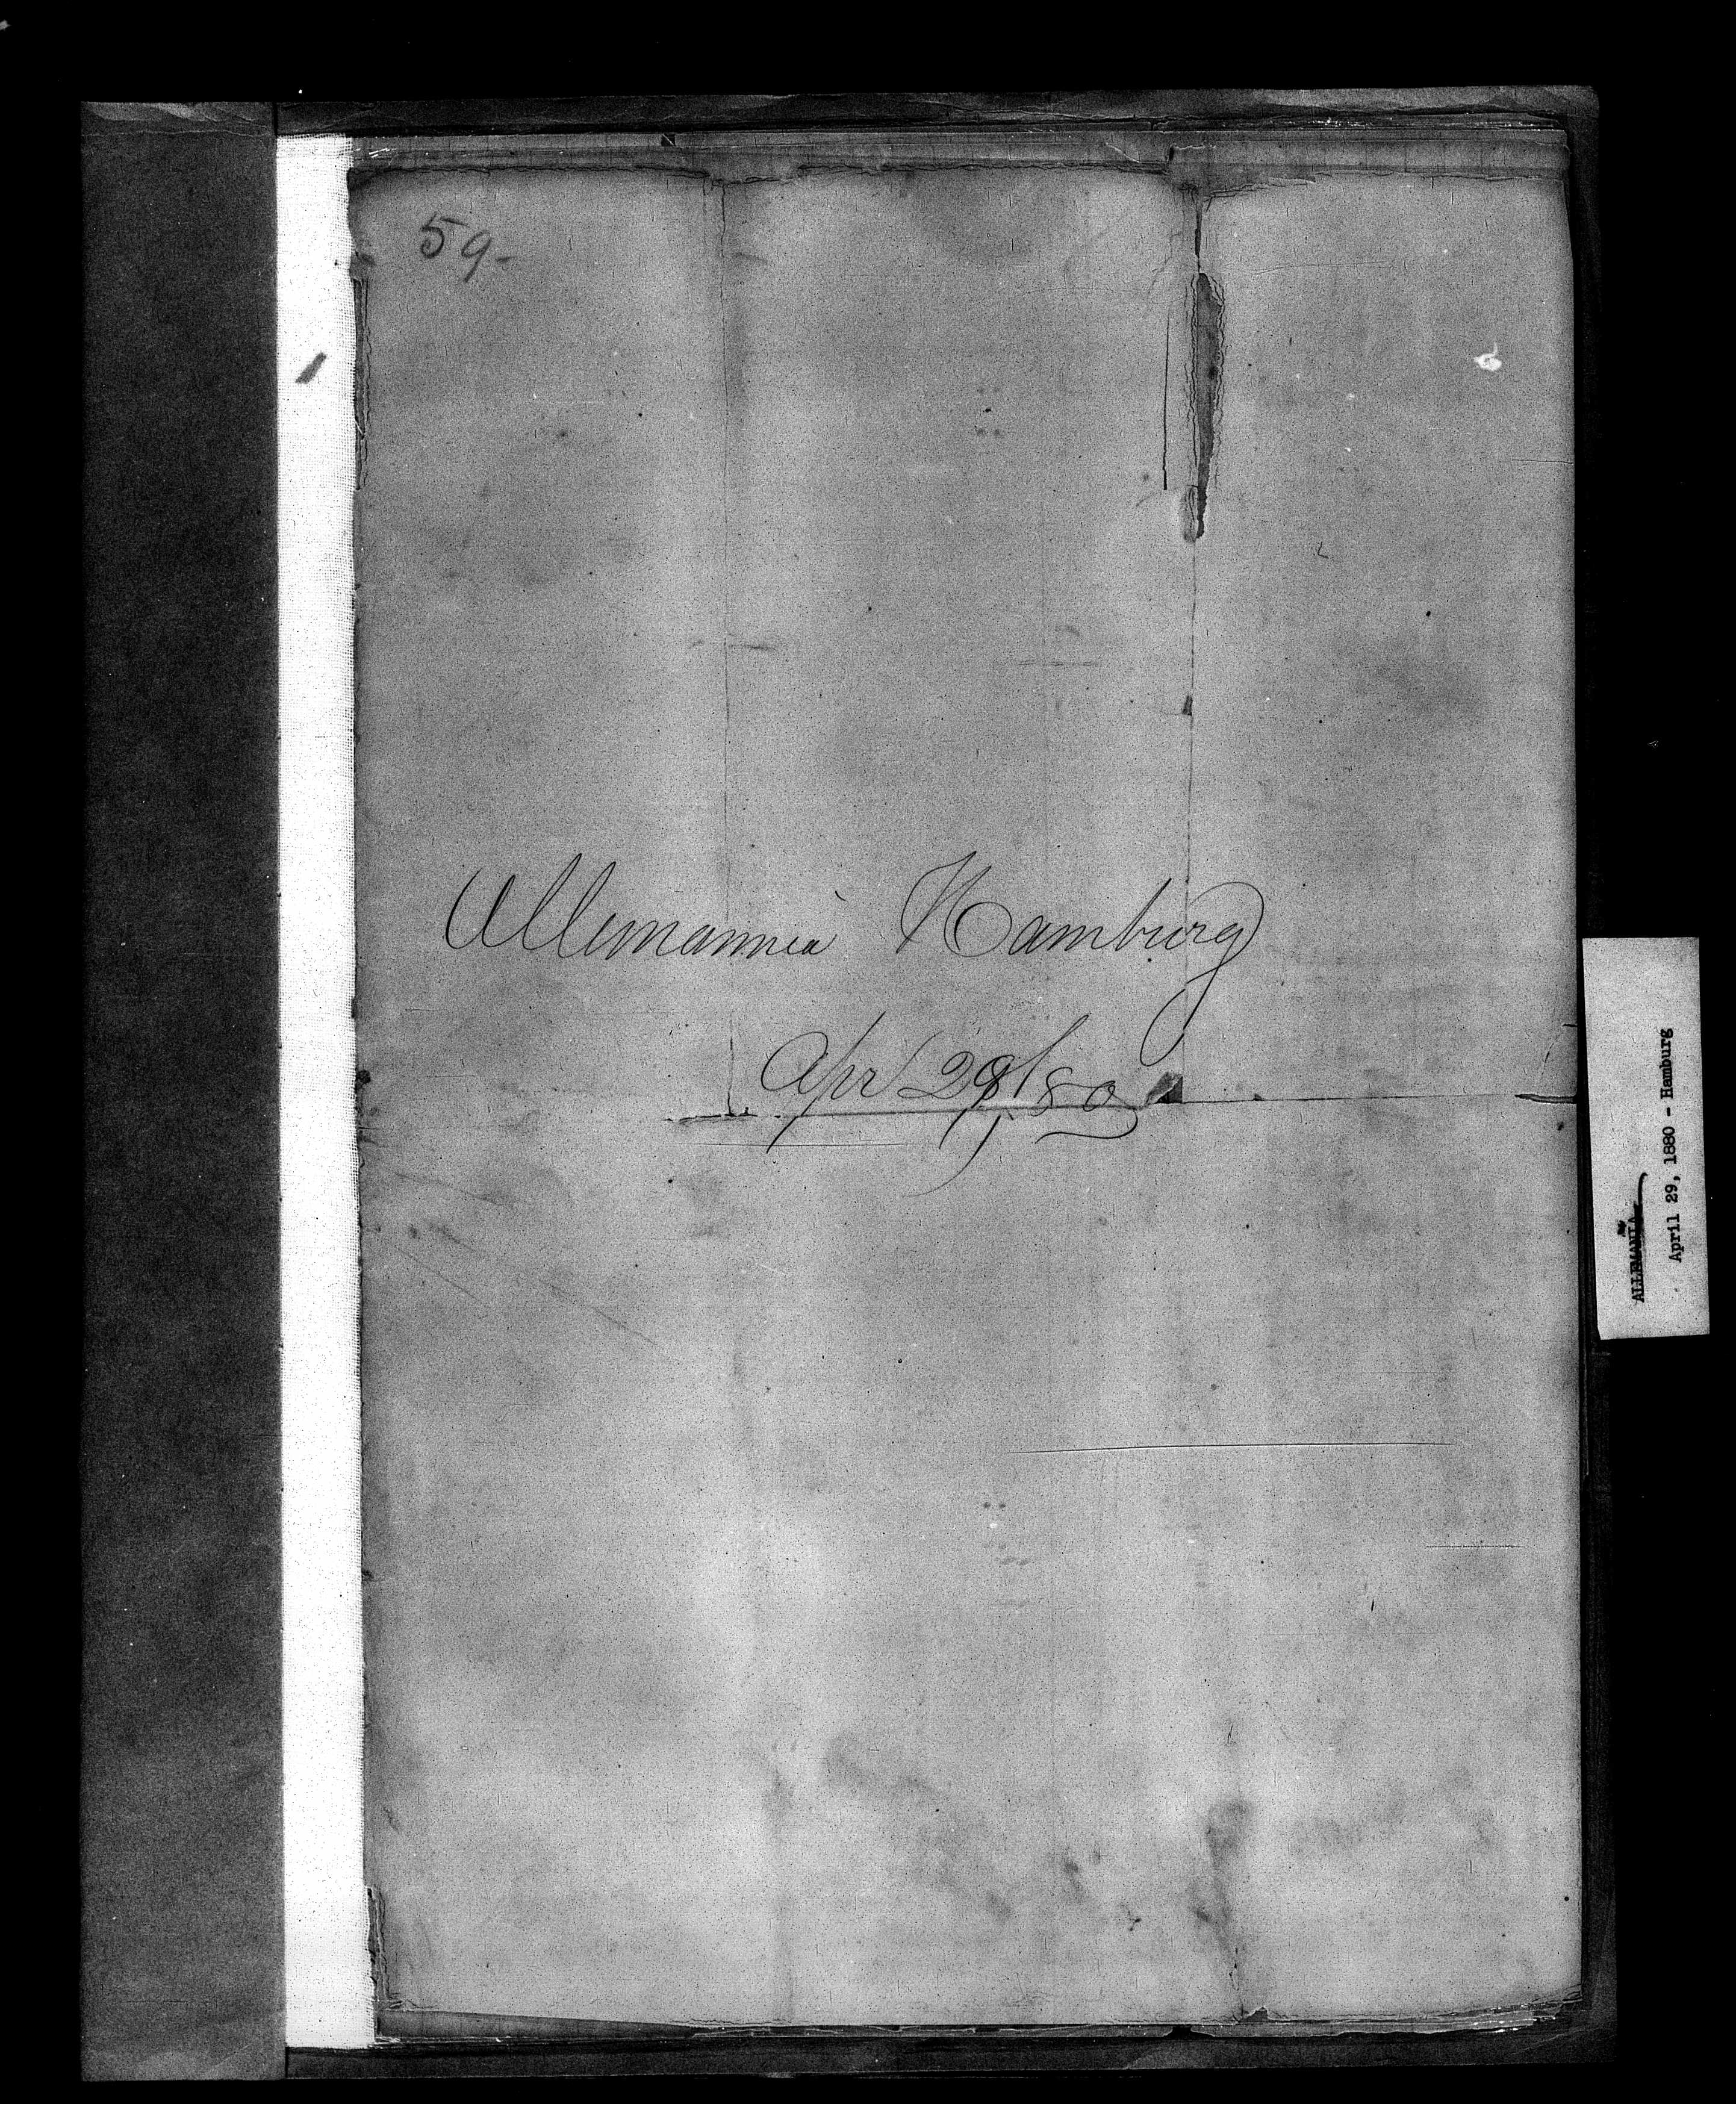 59-
Allemannia Hamburg
Apr 29/80
ALLEMANIA
April 29, 1880 - Hamburg